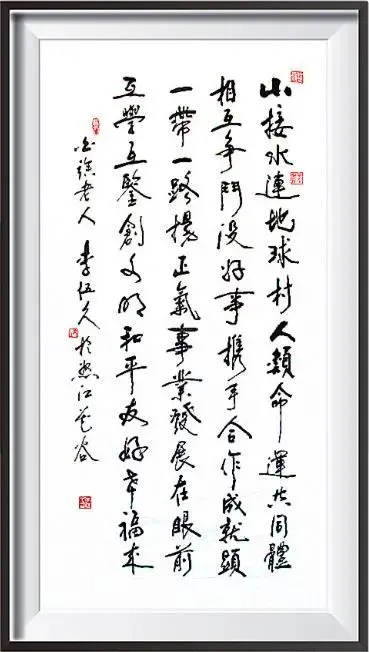 山接水連地球村人類命運共同體
相互爭鬥没好事携手合作成就顯
一帶一路揚正氣事業發展在眼前
互學互鑒創文明和平友好幸福来
老人李伍久於江谷